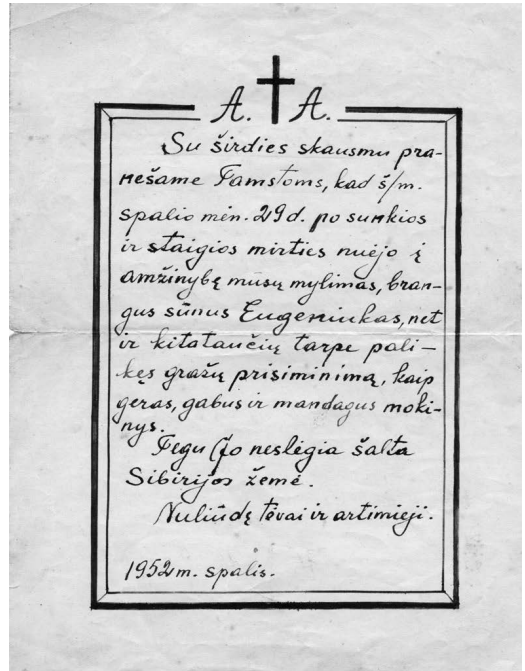 A. A.
Su širdies skausmu pra-
nešame Tamstoms, kad š/m.
spalio mėn. 29 d. po sunkios
ir staigios mirties nuėjo į
amžinybę mūsų mylimas, bran-
gus sūnus Eugeniukas, net
ir kitataučių tarpe pali-
kęs gražų prisiminimą, kaip
geras, gabus ir mandagus moki-
nys.
Tegu Jo neslėgia šalta
Sibirijos žemė.
Nuliūdę tėvai ir artimieji.
1952 m. spalis.